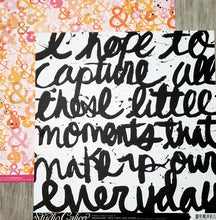 I hope to
capture all
these little
moments that
make up your
everyday
Studio Calico